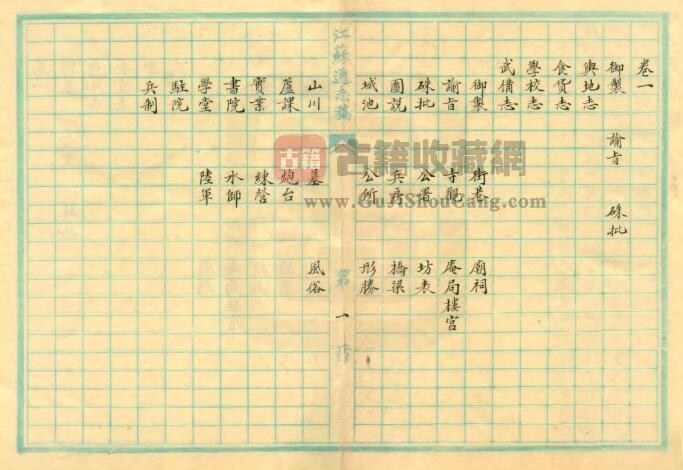 卷一
御製 諭旨 硃批
輿地志
食貨志
學校志
武備志
御製 街巷 廟祠
諭旨 寺觀 庵局樓宮
硃批 公署 坊表
圖說 兵房 橋梁
城池 公所 形勝
江蘇通志稿 第一
山川 墓 風俗
蘆課 炮台
實業 練營
書院 水師
學堂 陸軍
駐院
兵制
古籍 古籍收藏網
www.GuJiShouCang.com